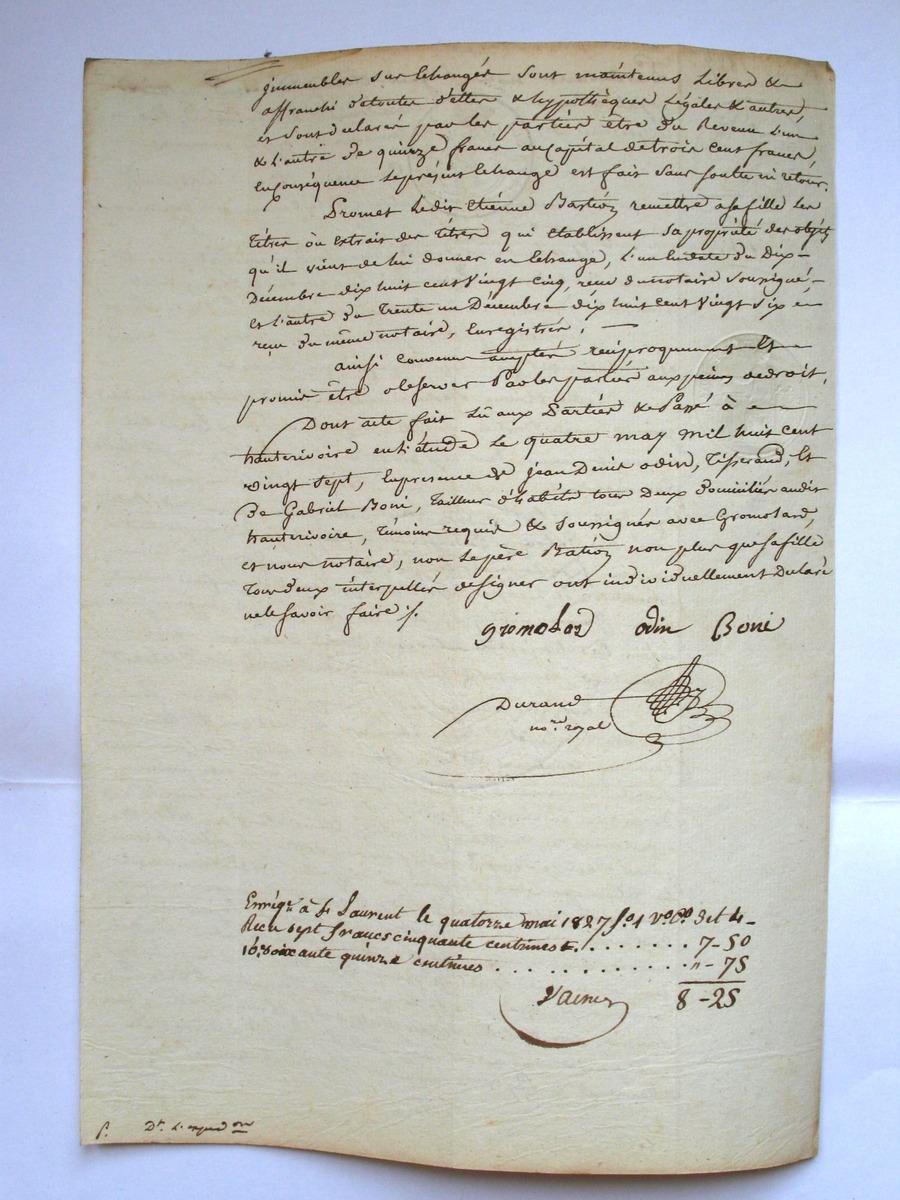 jmmeubles sus Echangés sont maintenus libres &
affranchi de toutes dettes & hypothèques Légales & autres,
et sont declarés par les parties être du Revenu L'un
& L'autre de quinze francs au Capital de trois cent francs,
En conséquence Le présent Echange est fait sans soulte ni retour.
Promet Ledit Etiénne Bastion remettre a sa fille les
titres où extrait des titres qui établissent sa proprieté des objets
qu'il vient de lui donner en Echange, L'un En date du Dix
Décembre dix huit cent Vingt Cinq, recu du notaire soussigné
et L'autre du Trente un Décembre dix huit cent Vingt Six
reçu du même notaire, Enregistrés.
ainsi Convenu accepter réciproquement Et
promis être observer Par les parties aux peines de droit,
Dont acte fait Lû aux Parties & Passé à
hauterivoire en l'étude Le quatre may mil huit cent
vingt sept, En présence de jean Denis odin, Tisserand, Et
de Gabriel Boni, Tailleur d'habits tous Deux domiciliés audit
hauterivoire, Témoins requis & soussignés avec Gromolard,
et nous notaire, non Le père Bation non plus que sa fille
Tous deux interpellés de signer ont individuellement Déclaré
ne le savoir faire ./.
gromolard odin Boni
Durand
no.re royal
Enrégré à St Laurent le quatorze mai 1827 fo. 1 vo. Co 3 et 4
Recu sept francs cinquante centimes . . . . . . . . 7-50
10.e soixante quinze centimes . . . . . . . . . . . . . " - 75
8 - 25